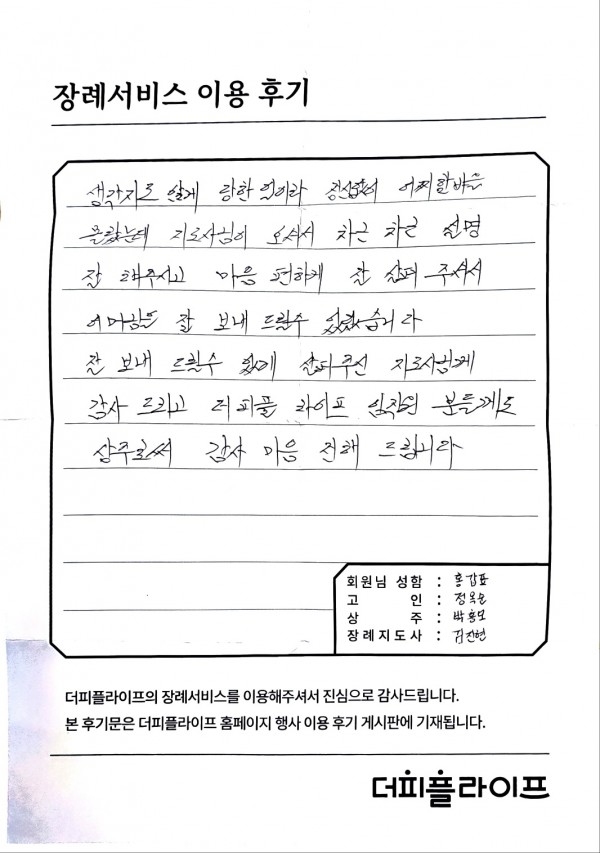 장례서비스 이용 후기
생각지도 않게 당한 일이라 정신없어 어찌할바를
몰랐는데 지도사님이 오셔서 차근 차근 설명
잘 해주시고 마음 편하게 잘 살펴 주셔서
어머님을 잘 보내 드릴수 있었습니다
잘 보내 드릴수 있게 살펴주신 지도사님께
감사 드리고 더피플 라이프 임직원 분들께도
상주로써 감사 마음 전해 드립니다
회원님 성함 : 홍갑표
고 인 : 정옥순
상 주 : 박홍모
장례지도사 : 김진현
더피플라이프의 장례서비스를 이용해주셔서 진심으로 감사드립니다.
본 후기문은 더피플라이프 홈페이지 행사 이용 후기 게시판에 기재됩니다.
더피플라이프